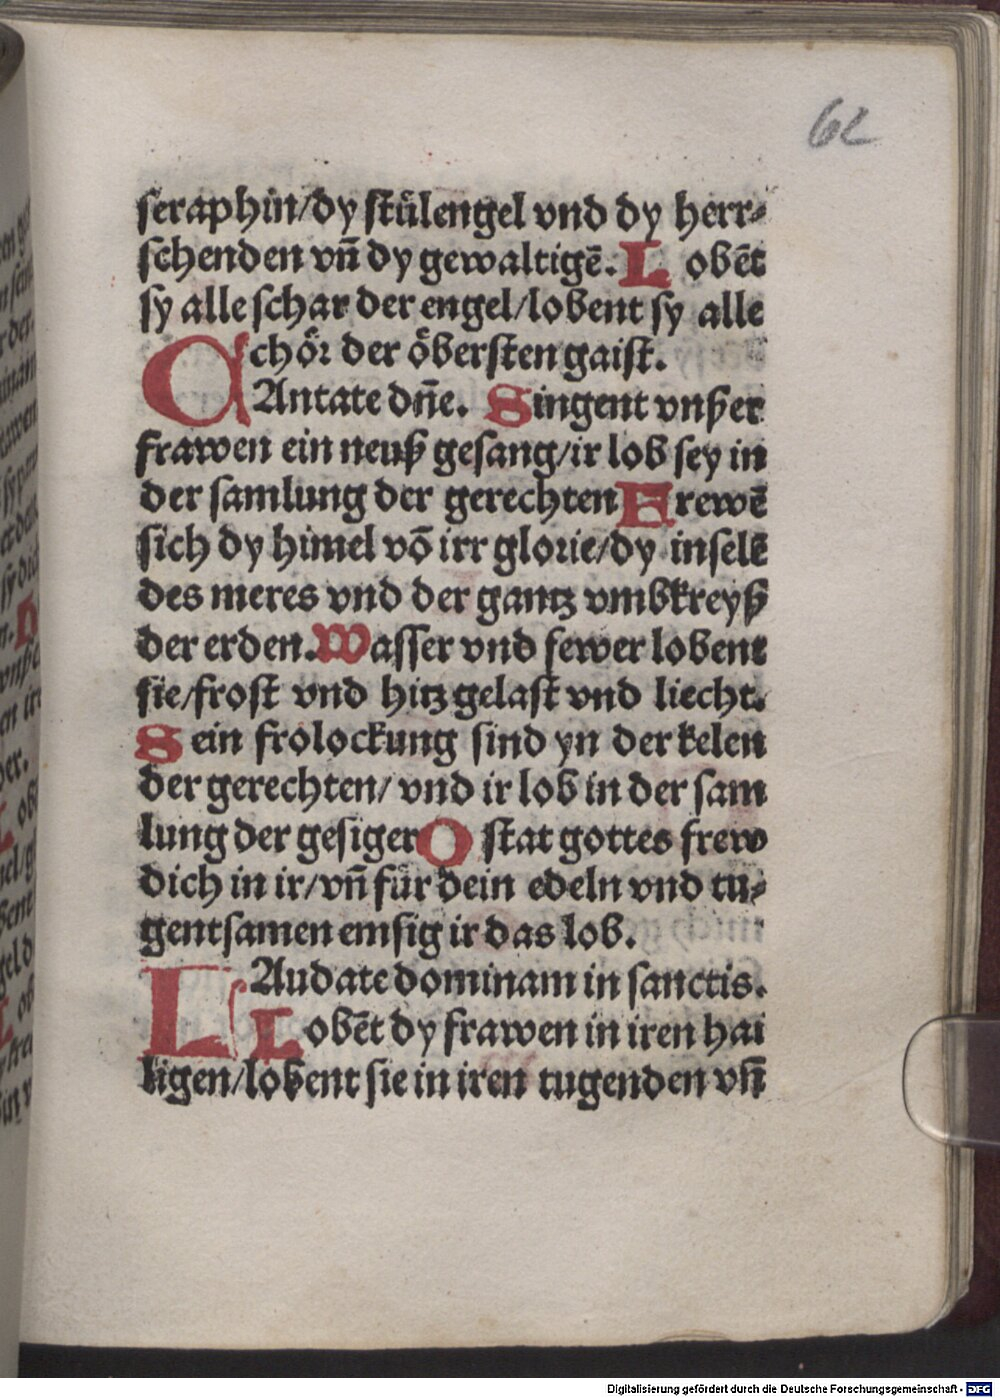 62
seraphin/dy stůlengel vnd dy herr⸗
schenden vn̄ dy gewaltigē. Lobēt
sy alle schar der engel/lobent sy alle
chör der öbersten gaist.
CAntate dn̄e. Singent vnßer
frawen ein neuß gesang/ir lob sey in
der samlung der gerechten Erewē
sich dy himel vō irr glorie/dy inselē
des meres vnd der gantz vmbkreyß
der erden. Wasser vnd fewer lobent
sie/frost vnd hitz gelast vnd liecht.
Sein frolockung sind yn der kelen
der gerechten/ vnd ir lob in der sam
lung der gesiger O stat gottes frew
dich in ir/vn̄ für dein edeln vnd tu⸗
gentsamen emsig ir das lob.
LAudate dominam in sanctis.
Lobēt dy frawen in iren hai
ligen/lobent sie in iren tugenden vn̄
Digitalisierung gefördert durch die Deutsche Forschungsgemeinschaft - DFG